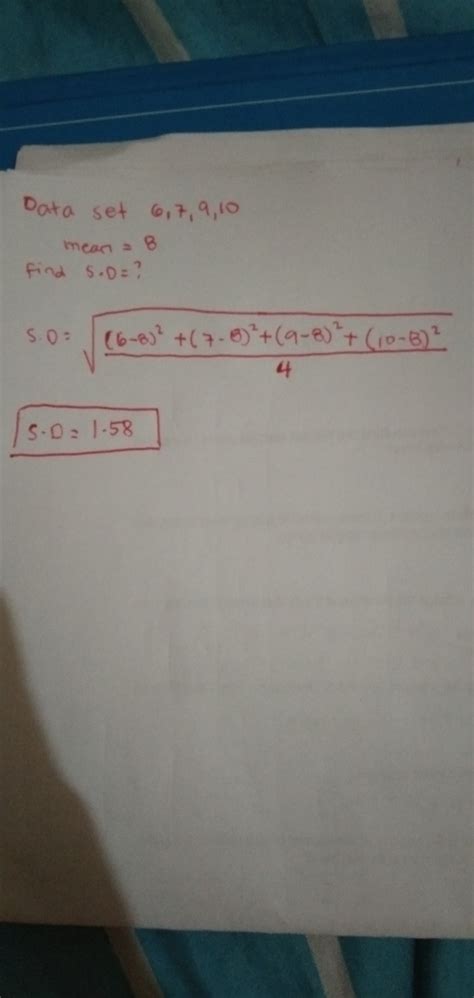 Data set 6,7,9,10
mean = 8
find S.D=?
S.D= √((6-8)²+(7-8)²+(9-8)²+(10-8)²
4
S.D= 1.58